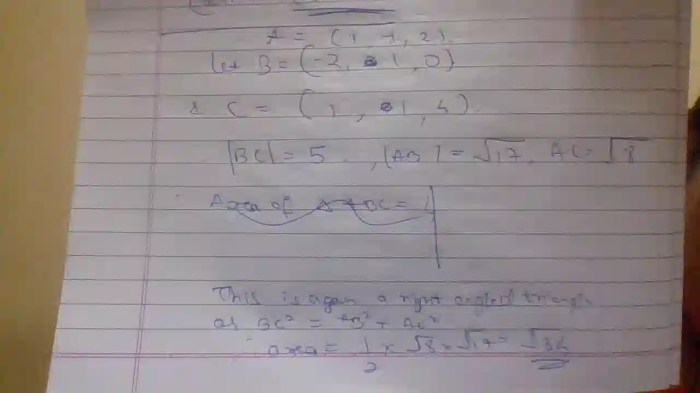 A = (1, -1, 2).
Let B = (-2, 1, 0)
& C = (1, 1, 4)
|BC| = 5 . , |AB| = √17, AC = √8
Area of Δ ABC = 1
This is again a right angled triangle
as BC² = AB² + AC²
∴ area = 1/2 × √8 × √17 = √34